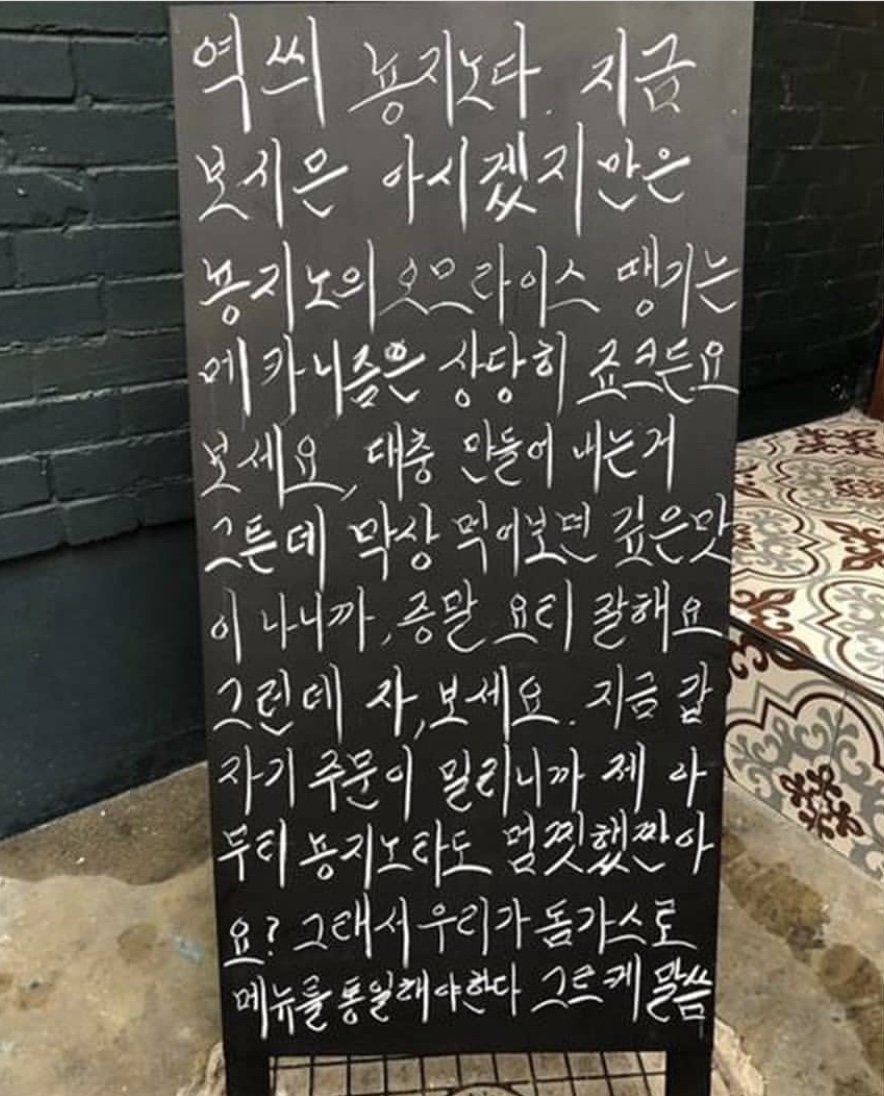 역씌 뇽지노다. 지금
보시믄 아시겠지만은
뇽지노의 오므라이스 땡기는
메카니즘은 상당히 죠크든요
보세요, 대충 만들어 내는거
그튼데 막상 먹어보면 깊은맛
이 나니까, 증말 요티 잘해요
그런데 자, 보세요. 지금 갑
자기 주문이 밀리니까 제 아
무티 뇽지노라도 멈찟했짠아
요? 그래서 우리가 돔가스로
메뉴를 통일해야한다 그르케 말씀